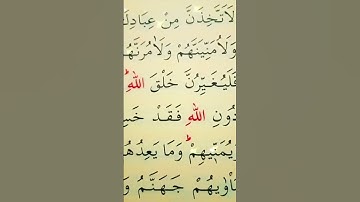 لَاَتَّخِذَنَّ مِنْ عِبَادِكَ
وَلَاُمَنِّيَنَّهُمْ وَلَاٰمُرَنَّهُمْ
فَلَيُغَيِّرُنَّ خَلْقَ اللّٰهِ
دُونِ اللّٰهِ فَقَدْ خَسِ
وَيُمَنِّيهِمْ وَمَا يَعِدُهُ
مَاْوٰيهُمْ جَهَنَّمُ وَ